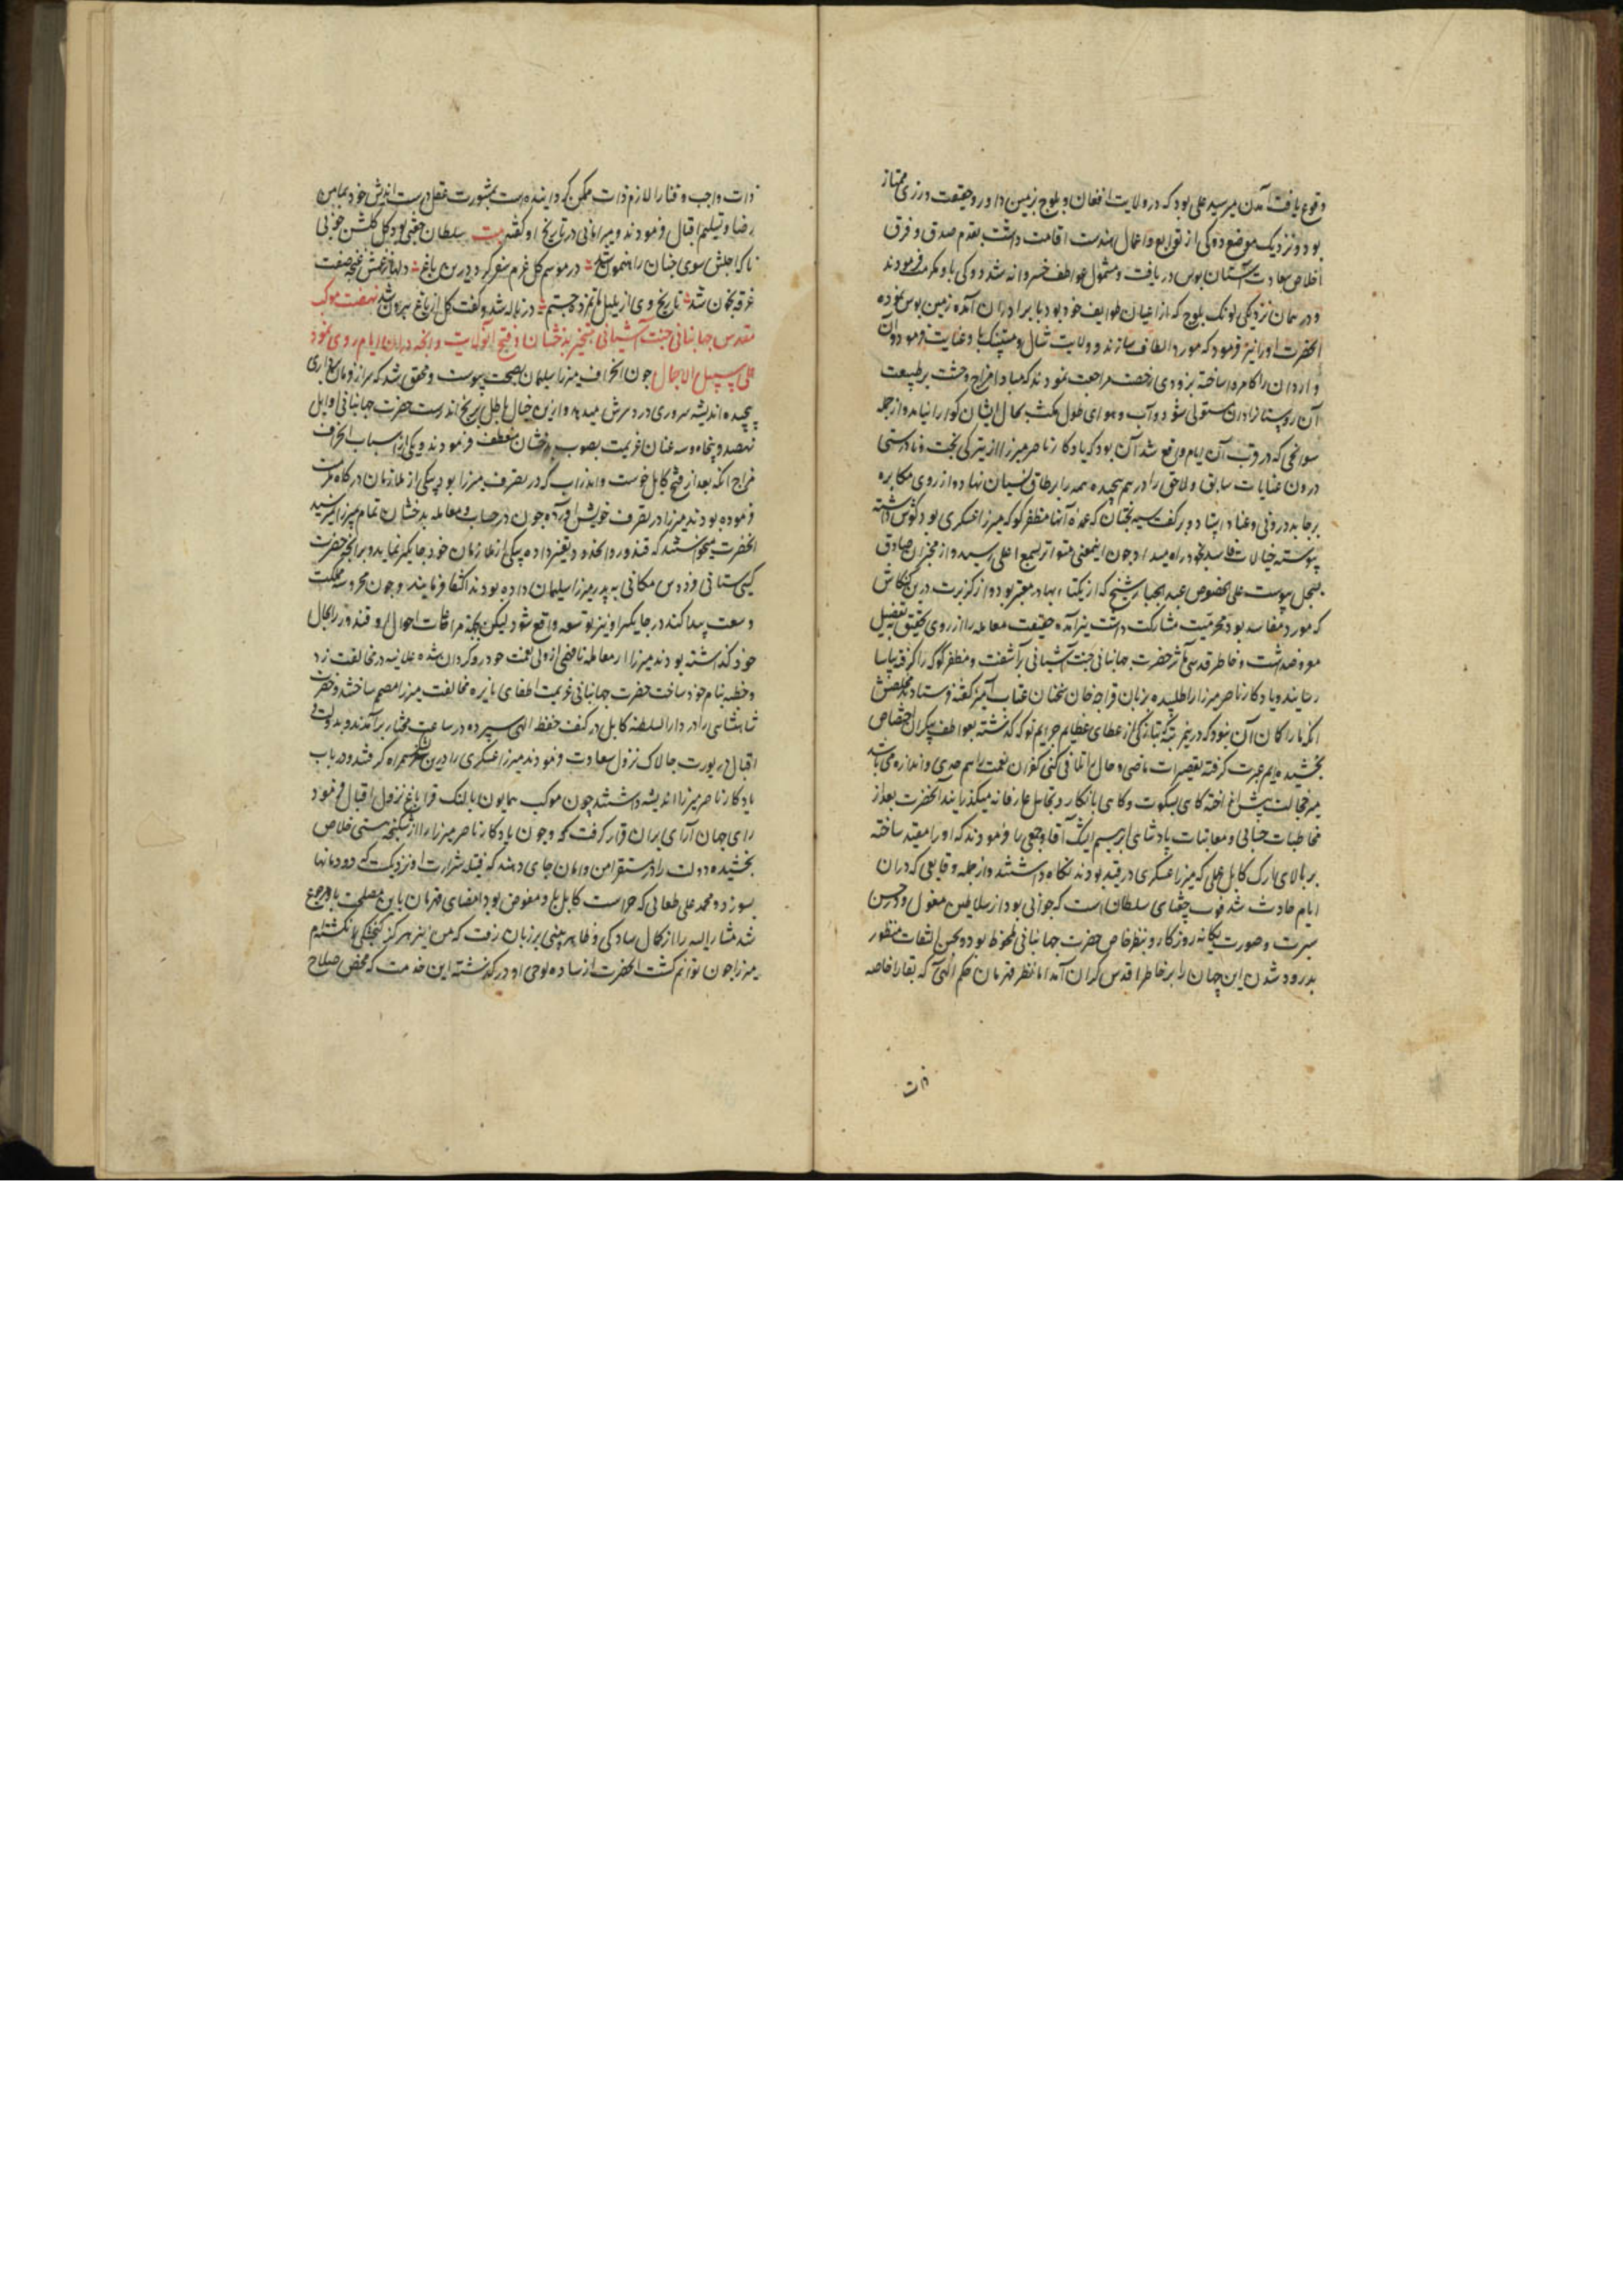 وقوع یافت آمدن میر سید علی بود که در ولایت افغان و بلوچ زمین داور و حقیقت ورزی ممتاز
بود و نزدیک موضع دوکی از توابع و اعمال هندست اقامت داشت بقدم صدق و فرق
اخلاص سعادت آستان بوس دریافت و مشمول عواطف خسروانه شد و دوکی باو مکرمت فرمودند
و در همان نزدیکی لونک بلوچ که از اعیان طوایف خود بود با برادران آمده زمین بوس نموده
آنحضرت او را نیز فرمود که مورد الطاف سازند و ولایت شال و مستنک باو عنایت فرمودند و آن
واردان را کامروا ساخته بزودی رخصت مراجعت نمودند که مبادا مزاج وحشت بر طبیعت
آن روستا زادان مستولی شود و آب و هوای طول مکث بحال ایشان گوارا نیاید و از جمله
سوانحی که در قرب آن ایام واقع شد آن بود که یادکار ناصر میرزا از تیرگی بخت و نادرستی
درون عنایات سابق و لاحق را در هم پیچیده همه را بر طاق نسیان نهاد و از روی مکابره
بر جا بدرونی و عناد ایستاد و بر گفت سیه بختان که عمده آنها مظفر کوکه میرزا عسکری بود گوش داشته
پیوسته خیالات فاسد بخود راه میداد و چون اینمعنی متواتر بسمع اعلی رسید و از مخبران صادق
بسجل پیوست علی الخصوص عبد الجبار شیخ که از یکتا بهادر معتبر بود و از کزبرت درین کنکاش
که مورد مفاسد بود محرمیت مشارکت داشت نیز آمده حقیقت معامله را از روی تحقیق بتفصیل
معروضداشت و خاطر قدسی مآثر حضرت جهانبانی جنت آشیانی برآشفت و مظفر کوکه را گرفته بیاسا
رسانیدند و یادکار ناصر میرزا را طلبیده بزبان قراجه خان سخنان عتاب آمیز گفته فرستادند مخلصش
آنکه ما را گمان آن بود که درین مرتبه که بتازگی از عطای عظایم جرایم تو که گذشته بعواطف بیکران اختصاص
بخشیده ایم عبرت گرفته تقصیرات ماضی و حال را تلافی کنی کفران نعمت را هم حدی و اندازه می باشد
میر خجالت پیش انداخته گاهی بسکوت و گاهی بانکار و تجاهل عارفانه میگذرانید آنحضرت بعد از
مخاطبات حسابی و معاتبات پادشاهی ابراهیم ایشک آقا و جمعی را فرمودند که او را مقید ساخته
بر بالای ارک کابل محلی که میرزا عسکری در قید بودند نگاه داشتند و از جمله وقایعی که در آن
ایام حادث شد فوت چغتای سلطان است که جوانی بود از سلاطین مغول و در حسن
سیرت و صورت یگانه روزگار و بنظر خاص حضرت جهانبانی ملحوظ بود و بحسن التفات منظور
پدرود شدن این جهان را بر خاطر اقدس گران آمد اما نظر قهرمان حکم الهی که بقا را خاصه
ذات
ذات واجب و فنا را لازم ذات ممکن گردانیده است بمشورت عقل درست اندیش خود بمامن
رضا و تسلیم اقبال فرمودند و میر امانی در تاریخ او گفته بیت سلطان چغتی بود گل گلشن خوبی
ناگه اجلش سوی جنان راهنمون شد در موسم گل عزم سفر کرد درین باغ دلها ز غمش غنچه صفت
غرقه بخون شد تاریخ وی از بلبل ماتم زده جستم در ناله شد و گفت گل از باغ برون شد نهضت موکب
مقدس جهانبانی جنت آشیانی بتسخیر بدخشان و فتح آنولایت و آنچه در آن ایام روی نمود
علی سبیل الاجمال چون انحراف میرزا سلیمان بصحت پیوست و محقق شد که سر از فرمان برداری
پیچیده اندیشه سروری در سرش میدمد و ازین خیال باطل برنج اندرست حضرت جهانبانی اوایل
نهصد و پنجاه و سه عنان عزیمت بصوب بدخشان منعطف فرمودند و یکی از اسباب انحراف
مزاج آنکه بعد از فتح کابل خوست و اندراب که در تصرف میرزا بود بیکی از ملازمان درگاه مکرمت
فرموده بودند میرزا در تصرف خویش آورده چون در حساب و معامله بدخشان تمام میرزا نمیرسید
آنحضرت میخواستند که قندوز را بخود و تغیر داده بیکی از ملازمان خود جایگیر نماید و بر آنچه حضرت
گیتی ستانی فردوس مکانی به پدر میرزا سلیمان داده بودند اکتفا فرمایند و چون محروسه مملکت
وسعت پیدا کند در جایگیر او نیز توسعه واقع شود لیکن بجهة مراعات احوال او قندوز را بحال
خود گذاشته بودند میرزا از معامله نافهمی از ولی نعمت خود روگردان شده علانیه در مخالفت زد
و خطبه بنام خود ساخت حضرت جهانبانی عزیمت اطفای نایره مخالفت میرزا مصمم ساختند و حضرت
شاهنشاهی را در دار السلطنه کابل در کنف حفظ الهی سپرده در ساعت مختار برآمدند و بدولت
اقبال در یورت چالاک نزول سعادت فرمودند میرزا عسکری را درین سفر همراه گرفتند و در باب
یادکار ناصر میرزا اندیشه داشتند چون موکب همایون بالنگ قراباغ نزول اقبال فرمود
رای جهان آرای بران قرار گرفت که وجون یادکار ناصر میرزا را از شکنجه هستی خلاص
بخشیده دولت را در مستقر امن و امان جای دهند که فتیله شرارت او نزدیکست که دودمانها
بسوزد و محمد علی طغایی که حراست کابل باو مفوض بود امضای فرمان باین مصلحت باو رجوع
شد مشار الیه را از کمال سادگی و ظاهر بینی بر زبان رفت که من نیز هرگز گنجشکی را نکشته ام
میرزا چون توانم کشت آنحضرت از ساده لوحی او درگذشته این خدمت که محض صلاح